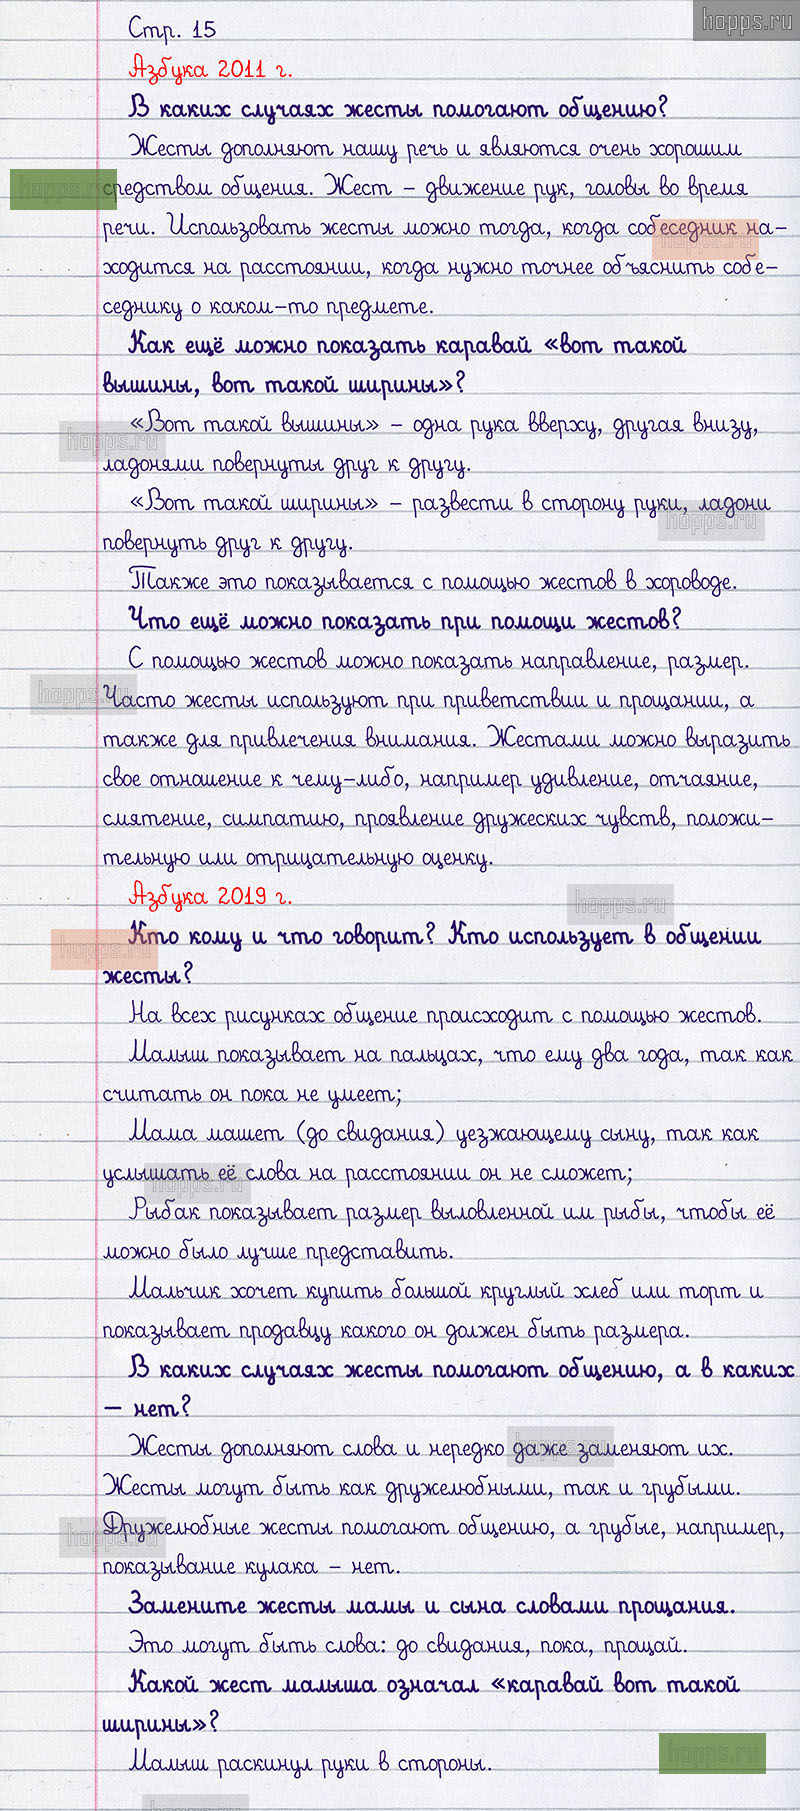 hopps.ru
Стр. 15
Азбука 2011 г.
В каких случаях жесты помогают общению?
Жесты дополняют нашу речь и являются очень хорошим
hopps.ru
средством общения. Жест – движение рук, головы во время
речи. Использовать жесты можно тогда, когда собеседник на-
hopps.ru
ходится на расстоянии, когда нужно точнее объяснить собе-
седнику о каком-то предмете.
Как ещё можно показать каравай «вот такой
вышины, вот такой ширины»?
«Вот такой вышины» – одна рука вверху, другая внизу,
hopps.ru
ладонями повернуты друг к другу.
«Вот такой ширины» – развести в сторону руки, ладони
hopps.ru
повернуть друг к другу.
Также это показывается с помощью жестов в хороводе.
Что ещё можно показать при помощи жестов?
С помощью жестов можно показать направление, размер.
hopps.ru
Часто жесты используют при приветствии и прощании, а
также для привлечения внимания. Жестами можно выразить
свое отношение к чему-либо, например удивление, отчаяние,
смятение, симпатию, проявление дружеских чувств, положи-
тельную или отрицательную оценку.
Азбука 2019 г.
hopps.ru
Кто кому и что говорит? Кто использует в общении
hopps.ru
жесты?
На всех рисунках общение происходит с помощью жестов.
Малыш показывает на пальцах, что ему два года, так как
считать он пока не умеет;
Мама машет (до свидания) уезжающему сыну, так как
услышать её слова на расстоянии он не сможет;
hopps.ru
Рыбак показывает размер выловленной им рыбы, чтобы её
можно было лучше представить.
Мальчик хочет купить большой круглый хлеб или торт и
показывает продавцу какого он должен быть размера.
В каких случаях жесты помогают общению, а в каких
– нет?
Жесты дополняют слова и нередко даже заменяют их.
hopps.ru
Жесты могут быть как дружелюбными, так и грубыми.
Дружелюбные жесты помогают общению, а грубые, например,
hopps.ru
показывание кулака – нет.
Замените жесты мамы и сына словами прощания.
Это могут быть слова: до свидания, пока, прощай.
Какой жест малыша означал «каравай вот такой
ширины»?
hopps.ru
Малыш раскинул руки в стороны.
hopps.ru